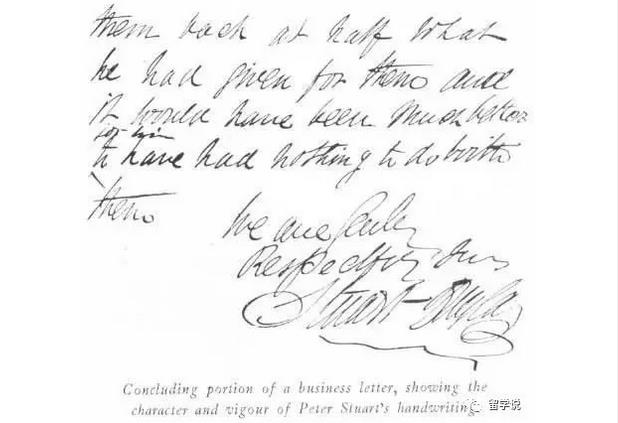 them back at half what
he had given for them and
it would have been much better
for him
to have had nothing to do with
them
We are Gentn
Respectfully Yours
Stuart & Douglas
Concluding portion of a business letter, showing the
character and vigour of Peter Stuart's handwriting
留学说